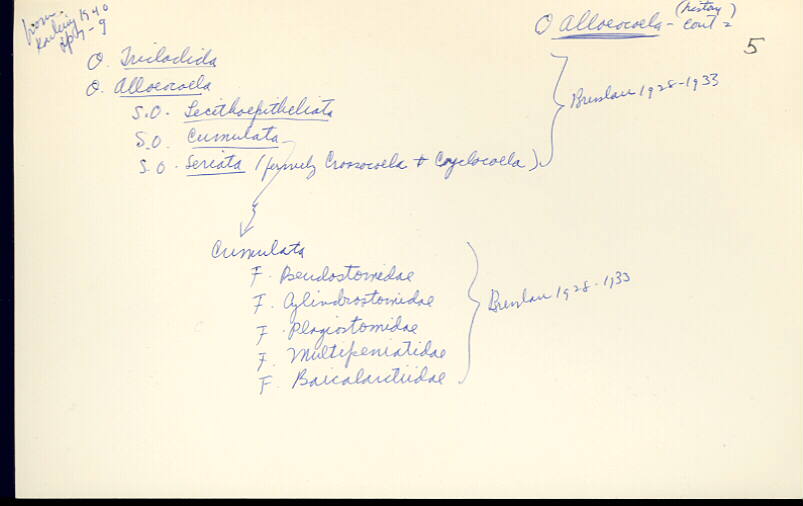 from
Karling 1940
pp 7-9
O Alloeocoela - (history) cont =
5
O. Tricladida
O. Alloeocoela
S.O. Lecithoepitheliata
S.O. Cumulata
S.O. Seriata (formerly Crossocoela + Cyclocoela)
Bresslau 1928-1933
Cumulata
F. Pseudostomidae
F. Cylindrostomidae
F. Plagiostomidae
F. Multipeniatidae
F. Baicalarctiidae
Bresslau 1928-1933